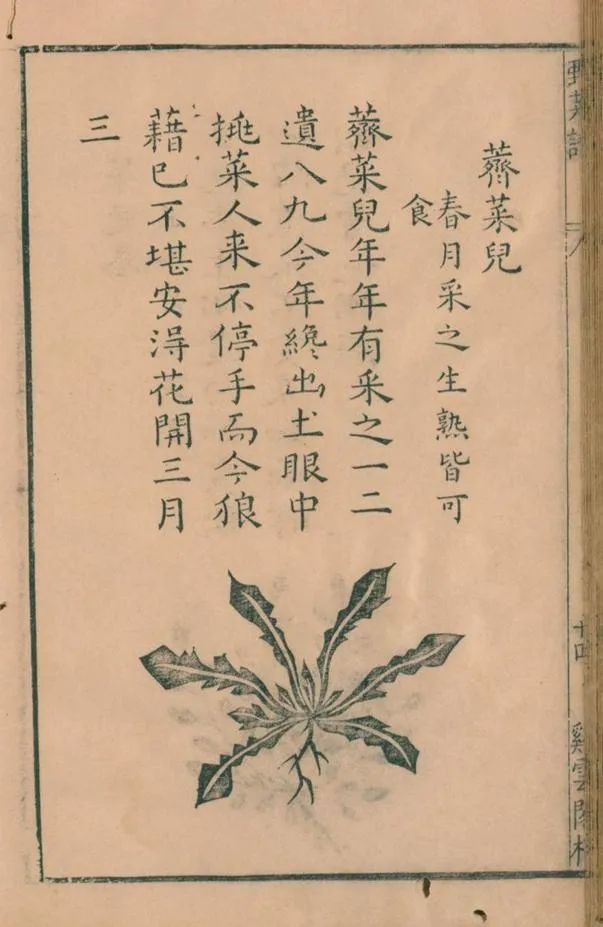 野菜譜
薺菜兒
春月采之生熟皆可
食
薺菜兒年年有采之一二
遺八九今年纔出土眼中
挑菜人来不停手而今狼
藉已不堪安淂花開三月
三